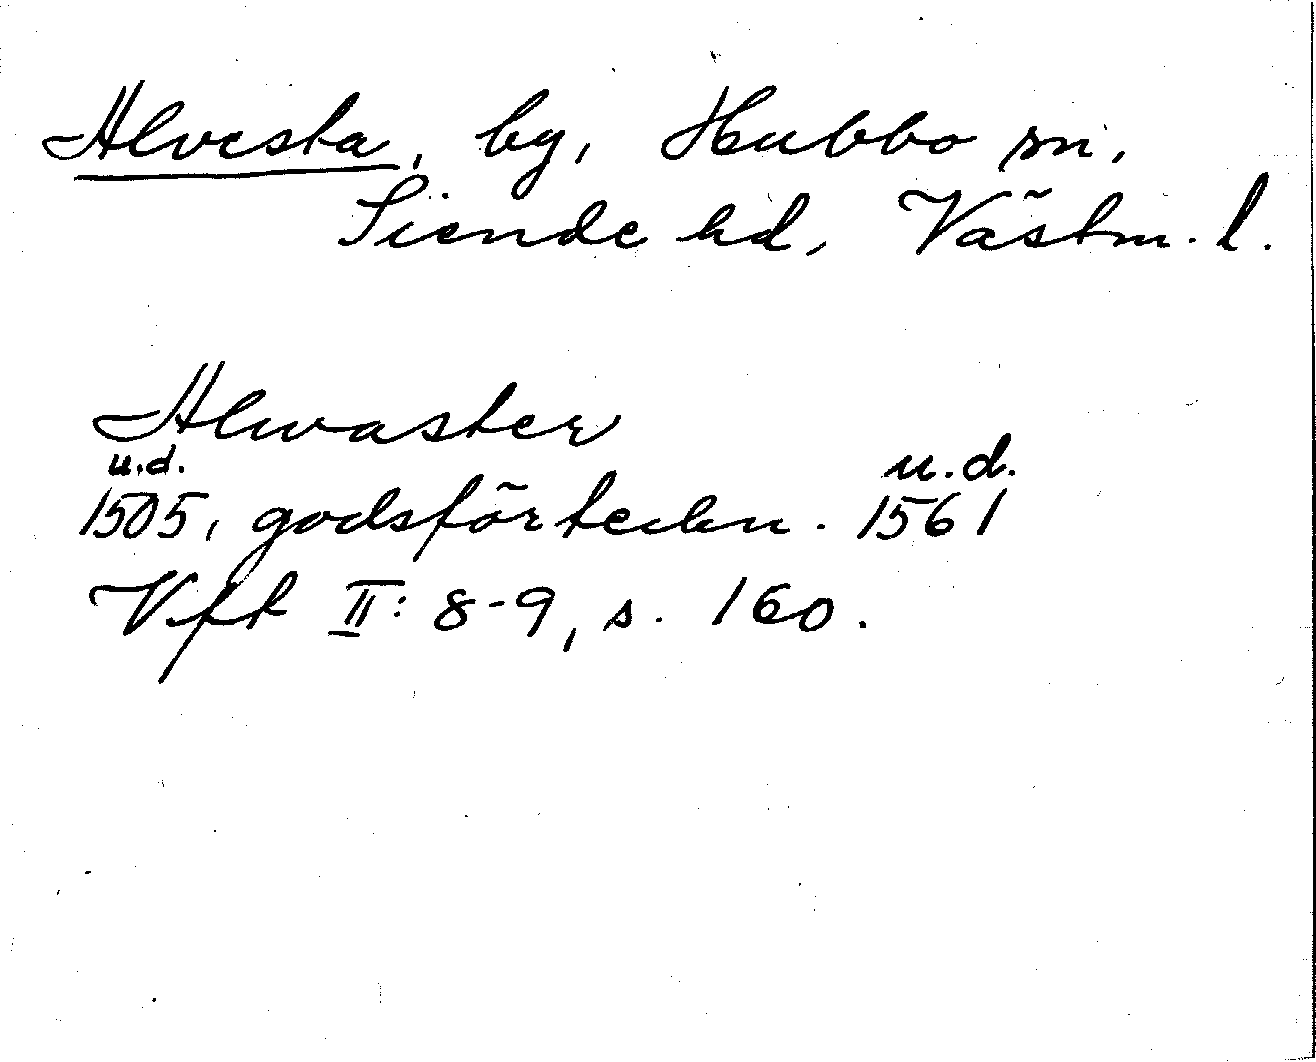 Alvesta, by, Hubbo sn,
Siende hd, Västm. l.
Alwaster
u.d. u.d.
1505, godsförteckn. 1561
Vft II: 8-9, s. 160.